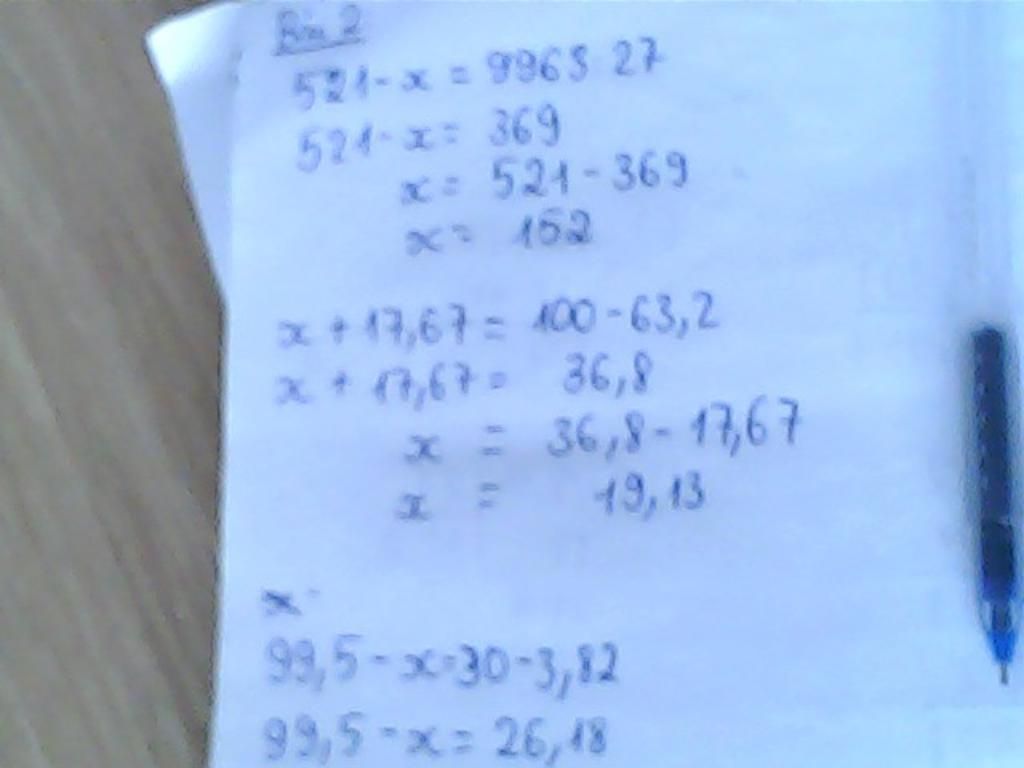 521 - x = 9963 27
521 - x = 369
x = 521 - 369
x = 152
x + 17,67 = 100 - 63,2
x + 17,67 = 36,8
x = 36,8 - 17,67
x = 19,13
x
99,5 - x = 30 - 3,82
99,5 - x = 26,18